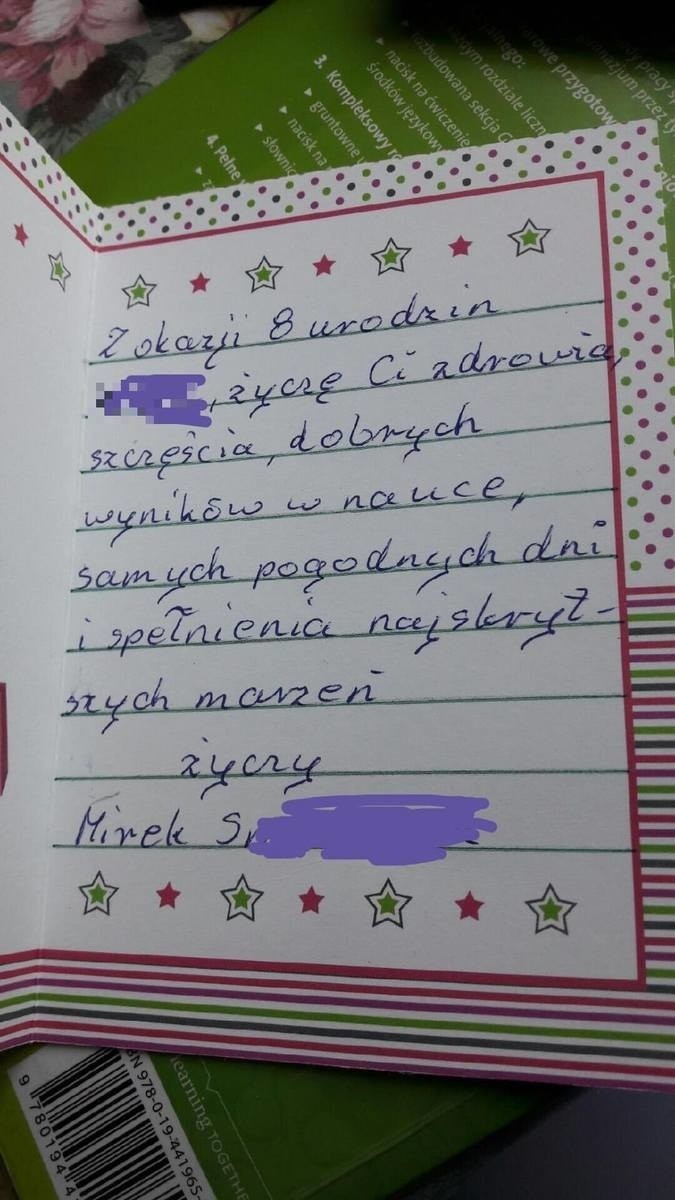 3. Kompleksowy
nacisk na ćwiczenie
środków językow
rozbudowana sekcja
gruntowne
nacisk na
słownic
4. Pełne
Z okazji 8 urodzin
, życzę Ci zdrowia,
szczęścia, dobrych
wyników w nauce,
samych pogodnych dni
i spełnienia najskryt-
szych marzeń
życzy
Mirek
BN 978-0-19-441965-
9 780194 4
learning TOGETHE